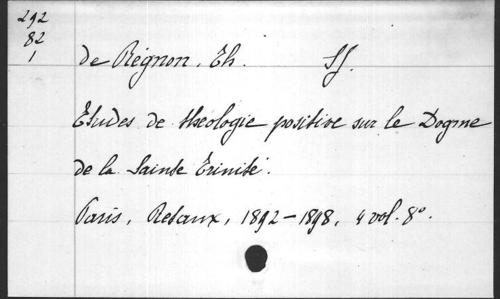 292
82
1
de Régnon, Th. SJ.
Etudes de théologie positive sur le Dogme
de la Sainte Trinité.
Paris, Retaux, 1892-1898, 4 vol. 8°.